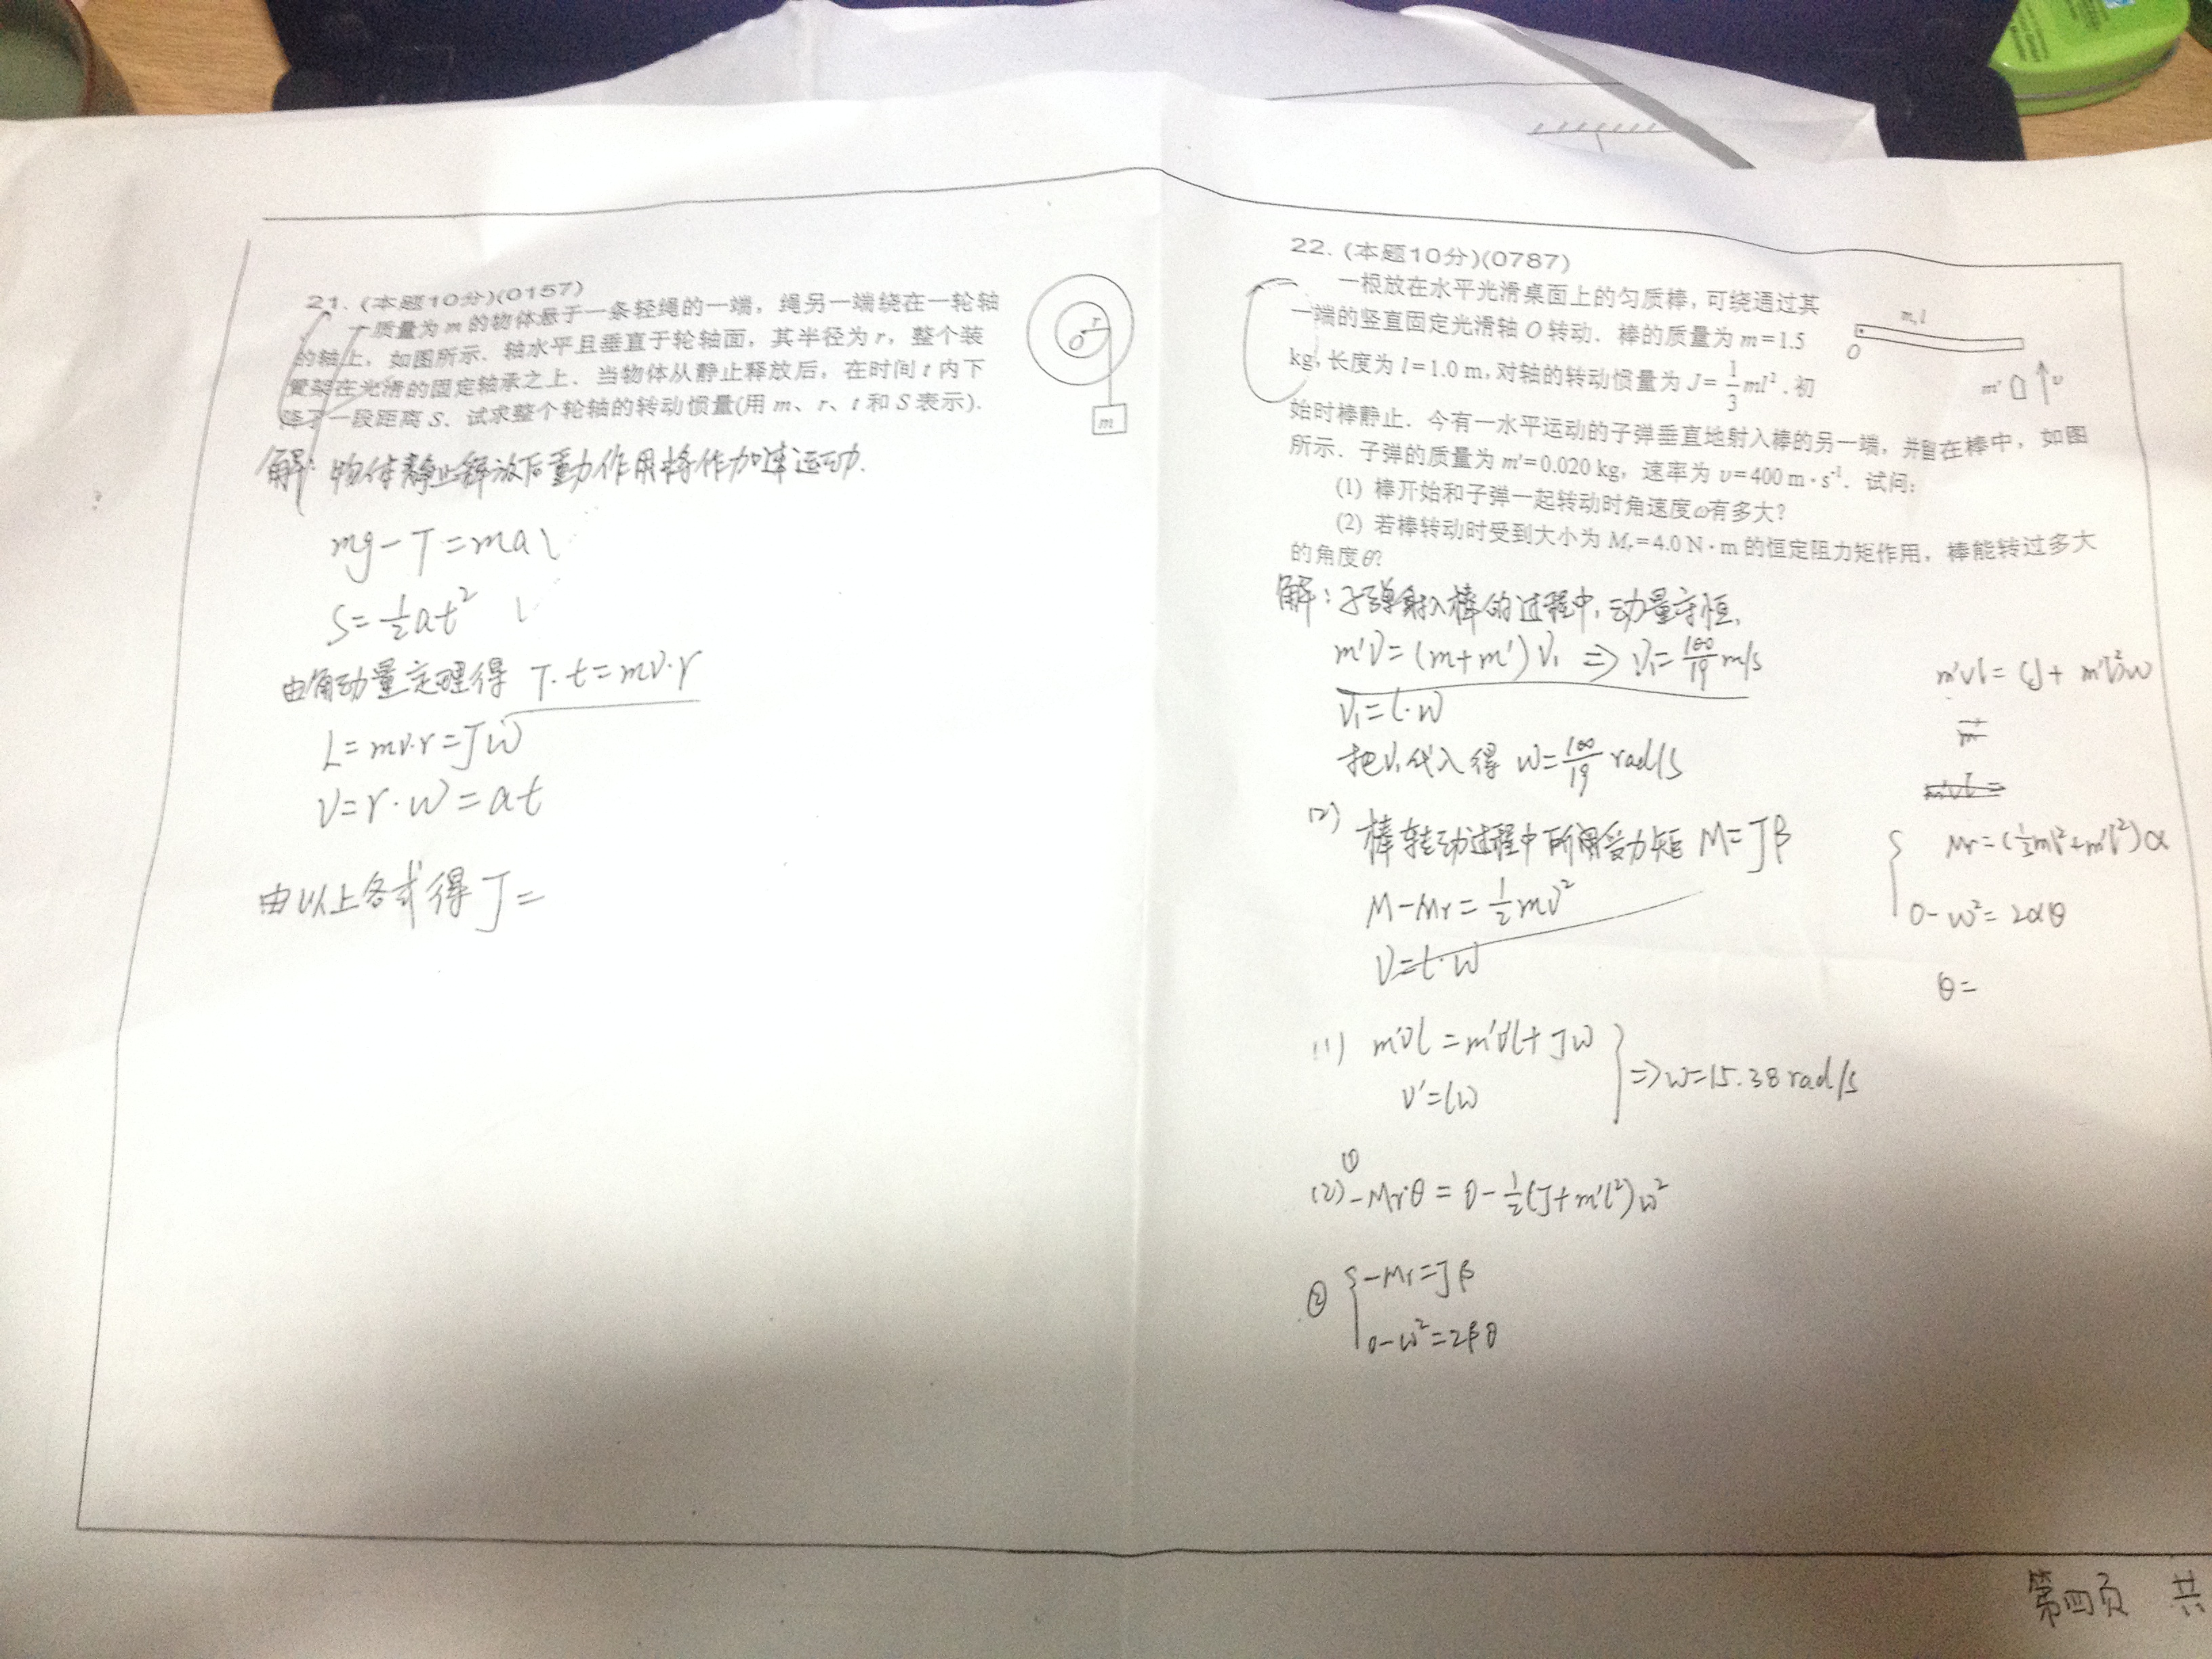 21. (本题10分)(0157)
一质量为 m 的物体悬于一条轻绳的一端，绳另一端绕在一轮轴
的轴上，如图所示．轴水平且垂直于轮轴面，其半径为 r，整个装
置架在光滑的固定轴承之上．当物体从静止释放后，在时间 t 内下
降了一段距离 S．试求整个轮轴的转动惯量(用 m、r、t 和 S 表示)．
r
O
m
解：物体静止释放后重力作用将作加速运动.
mg-T=ma
S=½at²
由角动量定理得 T·t=mv·r
L=mv·r=Jω
V=r·ω=at
由以上各式得 J=
22. (本题10分)(0787)
一根放在水平光滑桌面上的匀质棒，可绕通过其
一端的竖直固定光滑轴 O 转动．棒的质量为 m=1.5
kg，长度为 l=1.0 m，对轴的转动惯量为 J=1/3 ml²．初
始时棒静止．今有一水平运动的子弹垂直地射入棒的另一端，并留在棒中，如图
所示．子弹的质量为 m'=0.020 kg，速率为 υ=400 m·s⁻¹．试问：
(1) 棒开始和子弹一起转动时角速度ω有多大？
(2) 若棒转动时受到大小为 Mr=4.0 N·m 的恒定阻力矩作用，棒能转过多大
的角度θ？
m, l
O
m' υ
解：子弹射入棒的过程中，动量守恒，
m'V=(m+m')V₁ ⇒ V₁=100/19 m/s
V₁=l·ω
把V₁代入得 ω=100/19 rad/s
(2) 棒转动过程中所受力矩 M=Jβ
M-Mr=½mV²
V=l·ω
(1) m'υl=m'υ'l+Jω
υ'=lω
⇒ω=15.38rad/s
(2) ① -Mrθ=0-½(J+m'l²)ω²
② -Mr=Jβ
0-ω²=2βθ
m'υl=(J+m'l²)ω
m
m'υl=
Mr=(⅓ml²+m'l²)α
0-ω²=2αθ
θ=
第四页 共